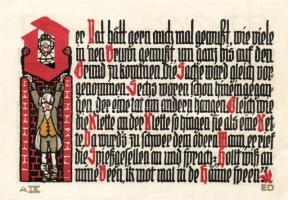 Der Rat hätt gern auch mal gewußt, wie viele
in den Brunn gemußt um ganz bis auf den
Grund zu kommen, die Sache ward gleich vor-
genommen Sechs waren schon hineingegan-
gen der eine tat am andern hangen Gleich wie
Klette an der Klette so hingen sie als eine Ket-
te Da ward's zu schwer dem obern Mann, er rief
die Spießgesellen an und sprach: Holt wiß an
mine Been, ik mot mal in de Hänne speen!
A IX
ED